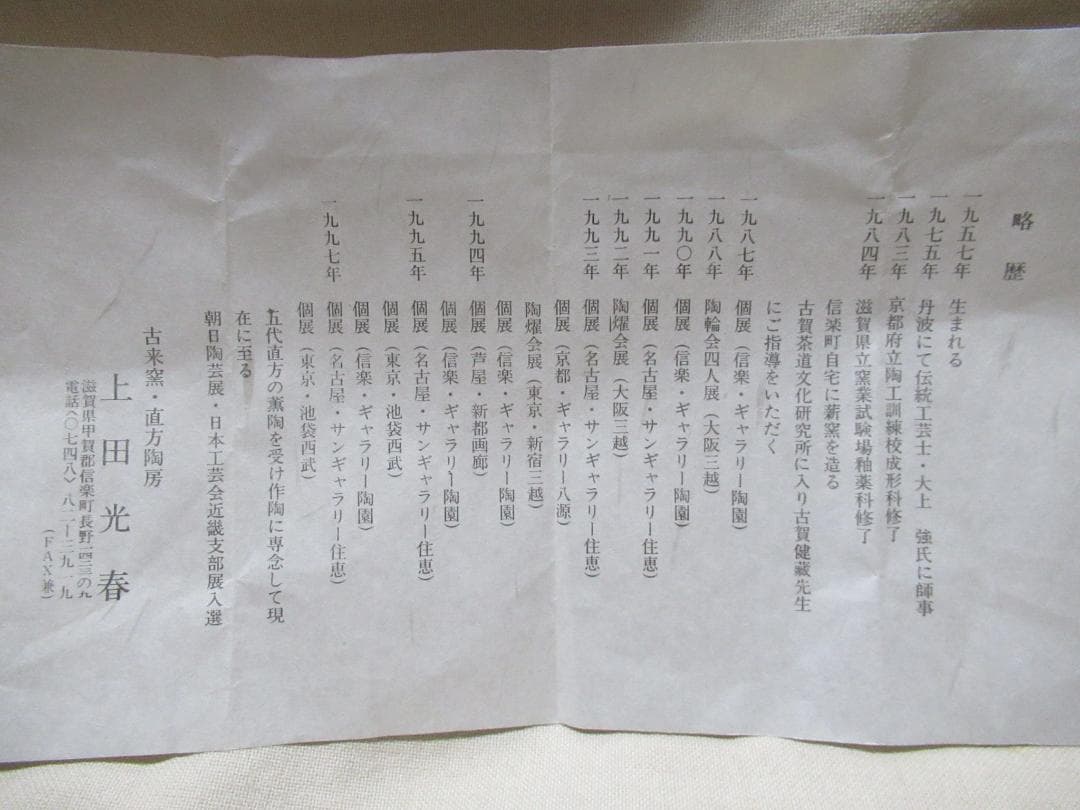 略歴
一九五七年 生まれる
一九七五年 丹波にて伝統工芸士・大上 強氏に師事
一九八三年 京都府立陶工訓練校成形科修了
一九八四年 滋賀県立窯業試験場釉薬科修了
信楽町自宅に薪窯を造る
古賀茶道文化研究所に入り古賀健藏先生
にご指導をいただく
一九八七年 個展（信楽・ギャラリー陶園）
一九八八年 陶輪会四人展（大阪三越）
一九九〇年 個展（信楽・ギャラリー陶園）
一九九一年 個展（名古屋・サンギャラリー住恵）
一九九二年 陶燿会展（大阪三越）
一九九三年 個展（名古屋・サンギャラリー住恵）
個展（京都・ギャラリー八源）
陶燿会展（東京・新宿三越）
個展（信楽・ギャラリー陶園）
一九九四年 個展（芦屋・新都画廊）
個展（信楽・ギャラリー陶園）
一九九五年 個展（名古屋・サンギャラリー住恵）
個展（東京・池袋西武）
個展（信楽・ギャラリー陶園）
一九九七年 個展（名古屋・サンギャラリー住恵）
個展（東京・池袋西武）
五代直方の薫陶を受け作陶に専念して現
在に至る
朝日陶芸展・日本工芸会近畿支部展入選
古来窯・直方陶房
上田光春
滋賀県甲賀郡信楽町長野一四三の九
電話〈〇七四八〉八二ー三九一九
（ＦＡＸ兼）